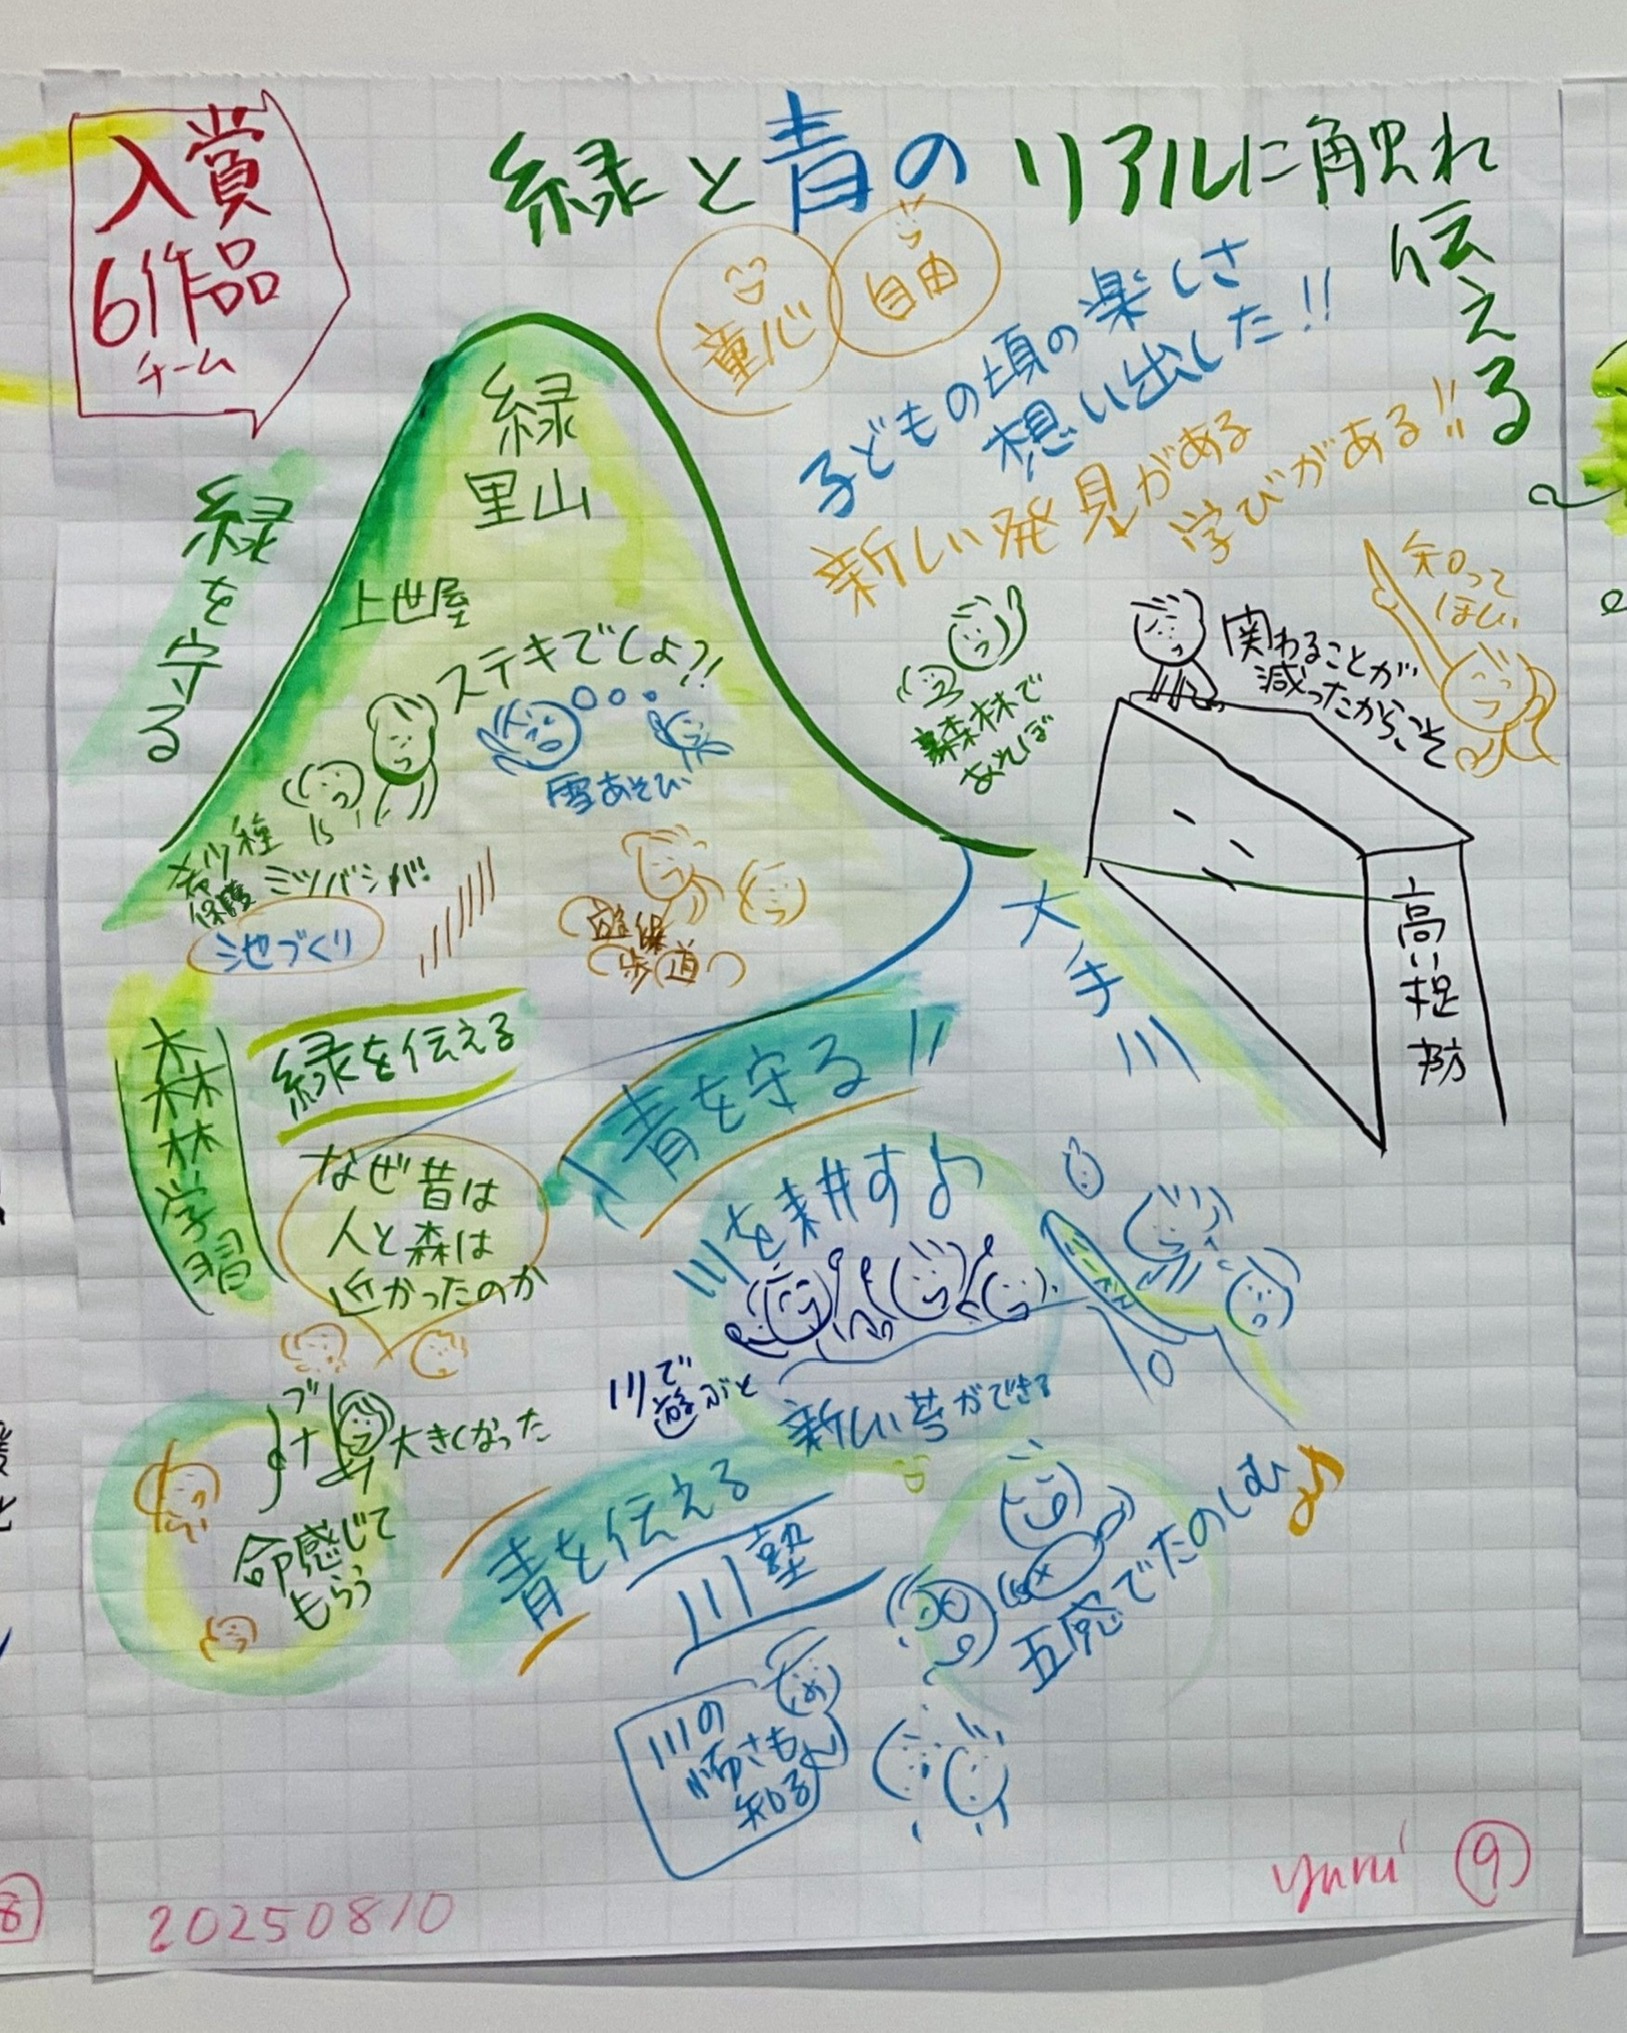 入賞
6作品
チーム
緑と青のリアルに触れ
伝える
童心
自由
子どもの頃の楽しさ
想い出した!!
新しい発見がある
学びがある!!
緑
里山
緑を守る
上世屋
ステキでしょう!!
雪あそび
希少種
保護
ミツバシが
池づくり
歩道
森林で
あそぼ
関わることが
減ったからこそ
知って
ほしい
高い堤防
大手川
森林学習
緑を伝える
なぜ昔は
人と森は
近かったのか
青を守る!!
川を耕すよ
川で
遊ぶと
新しい芽ができる
ブナ
大きくなった
命感じて
もらう
青を伝える
川塾
五感でたのしむ♪
川の
怖さも
知る
20250810
yuri
⑨
8